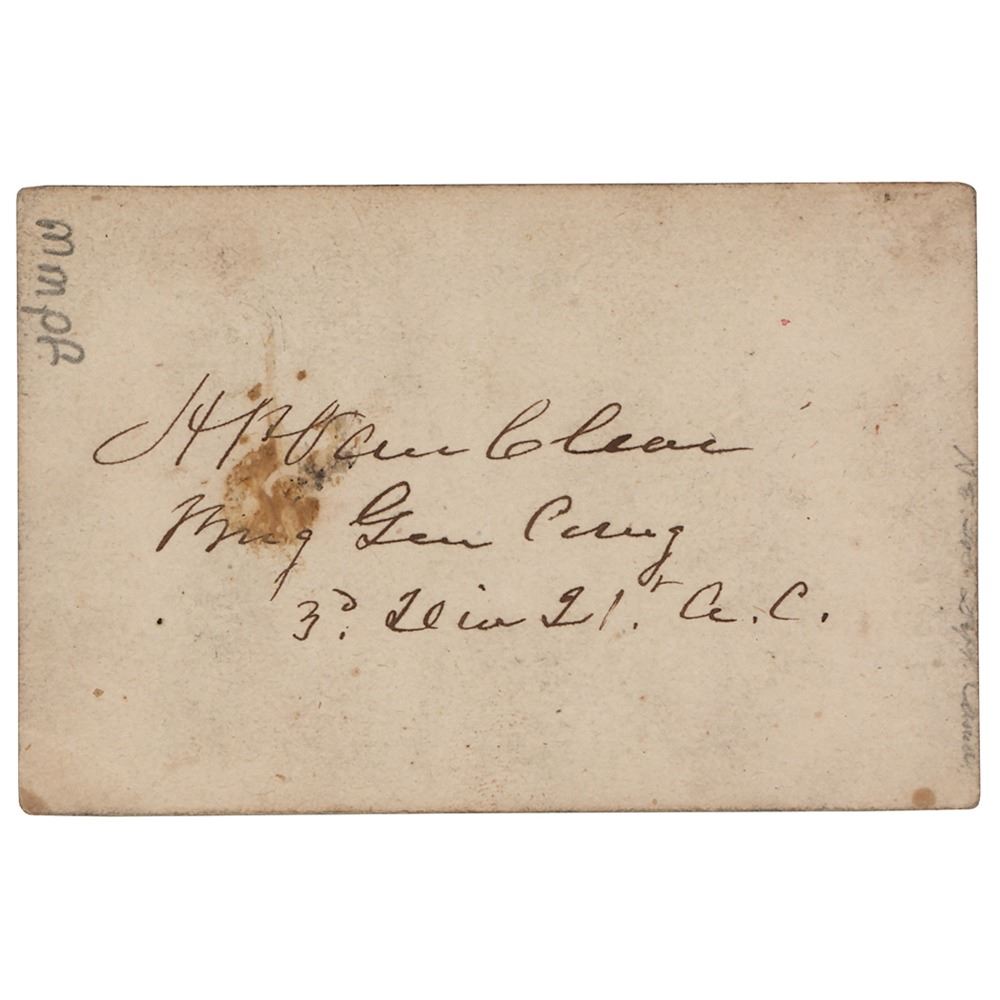 H P Van Cleve
Brig Gen Comg
3d. Div 21st. A. C.